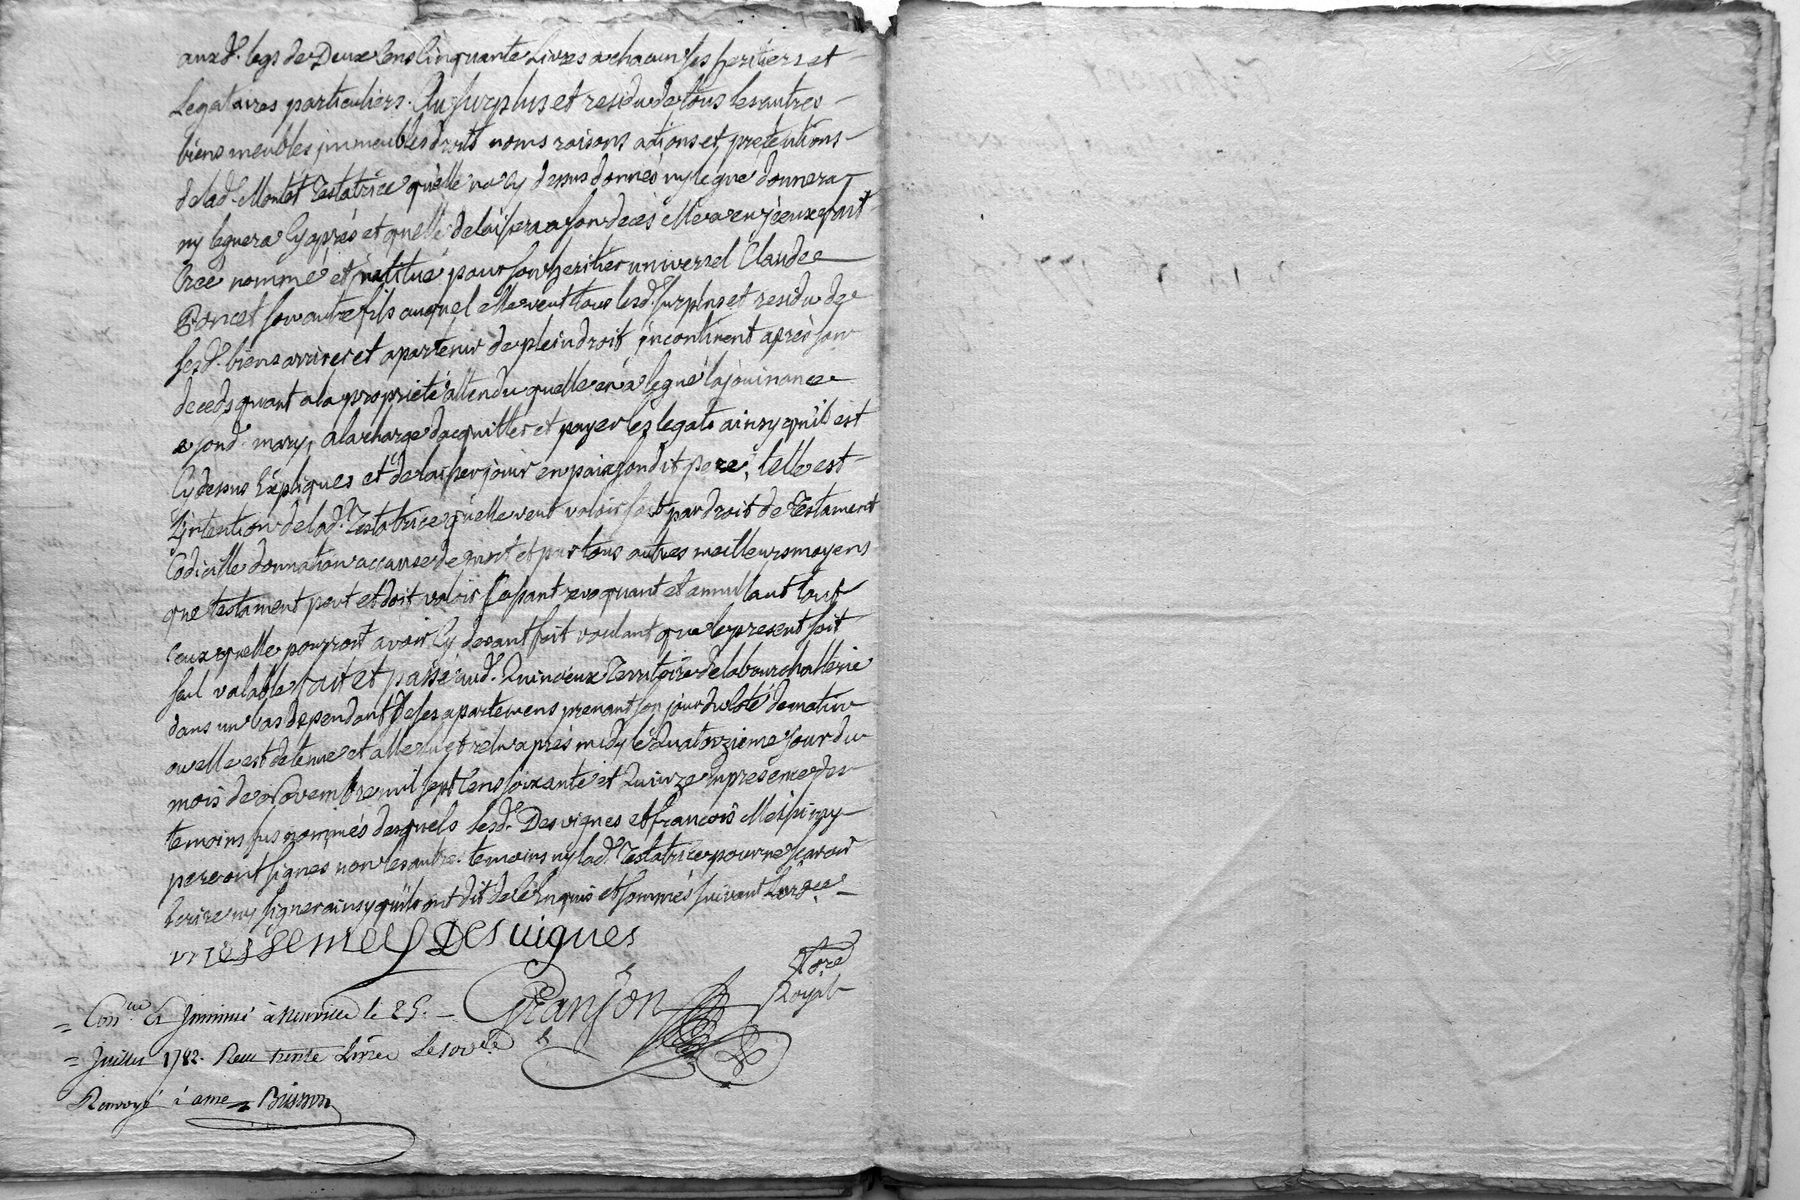 auxd. legs de Deux Cens Cinquante Livres a chacun ses heritiers et
Legataires particuliers. Au surplus et residu de tous les autres
biens meubles immeubles droits noms raisons actions et pretentions
de lad. Montet Testatrice qu'elle na cy dessus donnés ny legué donnera
ny leguera cy après et quelle delaissera a son decès elle a en jceux fait
Creé nommé et institué pour son heritier universel Claude
Poncet son autre fils auquel elle veut tous lesd. surplus et residu de
sesd. biens arriver et apartenir de plein droit jncontinent après son
deceds quant a la proprieté attendu quelle en a legué la jouinance
a sond. mary, a la charge dacquitter et payer les legats ainsy quil est
Cy dessus Expliqués et de laisser jouir en paix sondit pere, telle est
L'jntention de lad. Testatrice quelle veut valoir soit par droit de Testament
Codicille donnation a cause de mort et par tous autres meilleurs moyens
que testament peut et doit valoir Cassant revoquant et annullant tous
ceux quelle pourroit avoir cy devant fait voulant que le present soit
seul valable fait et passé aud. Quincieux Territoire de la bourchallerie
dans un bas dependant de ses apartemens prenant son jour du coté de matin
ou elle est detenue et a elle lu et relu après midy le Quatorzieme jour du
mois de Novembre mil sept Cens soixante et Quinze En presence des
temoins sus nommés desquels lesd. Desvignes et françois Mespiny
pere ont signés non les autres temoins ny lad. Testatrice pour ne scavoir
Ecrire ny signer ainsy quils ont dit de ce Enquis et sommés suivant
Desvignes
Granjon
Nore
Royal
= Conlé et Jnsinué à Neuville le 25. =
= Juillet 1782. Reçu trente Livres
Renvoyé à ame = Buisson